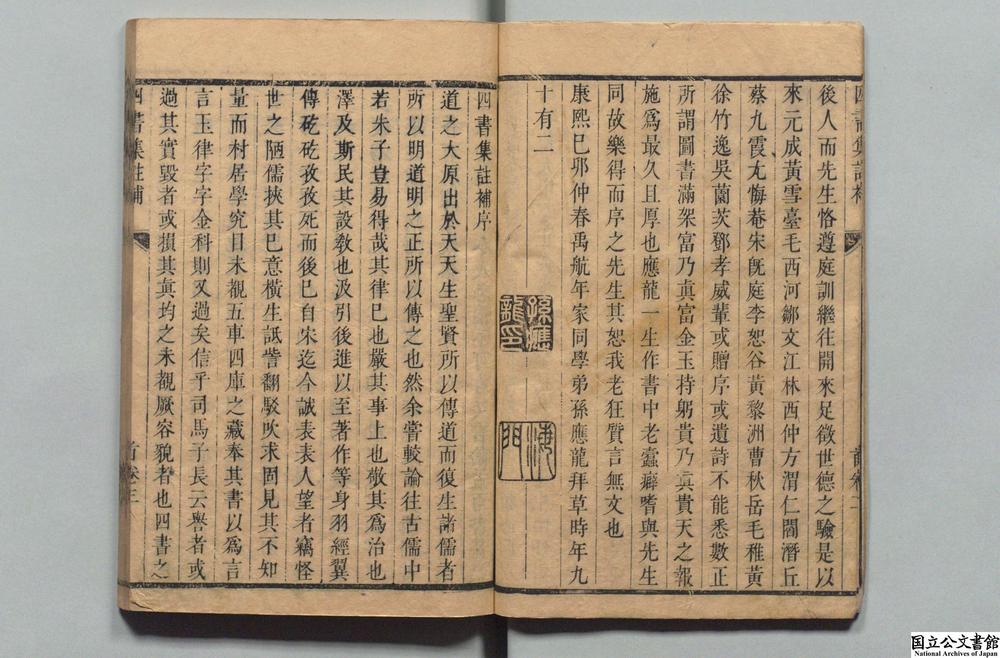 後人而先生恪遵庭訓繼往開來足徵世德之驗是以
來元成黃雪臺毛西河鄒文江林西仲方渭仁閻潛丘
蔡九霞尢悔菴宋旣庭李恕谷黃黎洲曹秋岳毛稚黃
徐竹逸吳蘭茨鄧孝威輩或贈序或遺詩不能悉數正
所謂圖書滿架富乃眞富金玉持躬貴乃眞貴天之報
施爲最久且厚也應龍一生作書中老蠹癖嗜與先生
同故樂得而序之先生其恕我老狂質言無文也
康熙巳夘仲春禹航年家同學弟孫應龍拜草時年九
十有二
孫應龍印
海門
四書集註補序
道之大原出於天天生聖賢所以傳道而復生諸儒者
所以明道明之正所以傳之也然余嘗較論往古儒中
若朱子豈易得哉其律巳也嚴其事上也敬其爲治也
澤及斯民其設教也汲引後進以至著作等身羽經翼
傳矻矻孜孜死而後巳自宋迄今誠表表人望者竊怪
世之陋儒挾其巳意橫生詆訾翻駁吹求固見其不知
量而村居學究目未覩五車四庫之藏奉其書以爲言
言玉律字字金科則又過矣信乎司馬子長云譽者或
過其實毀者或損其眞均之未覩厥容貌者也四書之
四書集註補
首卷三
国立公文書館
National Archives of Japan